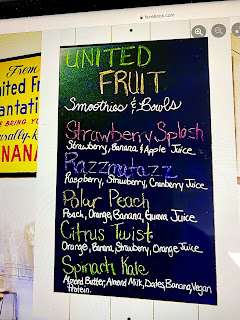 facebook.com
UNITED
FRUIT
Smoothies & Bowls
Strawberry Splash
Strawberry, Banana & Apple Juice
Razzmatazz
Raspberry, Strawberry, Cranberry Juice
Polar Peach
Peach, Orange, Banana, Guava Juice
Citrus Twist
Orange, Banana, Strawberry, Orange Juice
Spinach Kale
Almond Butter, Almond Milk, Dates, Banana, Vegan
Protein.
From
United Fr
antati
BRING YOU
urally-
NANA